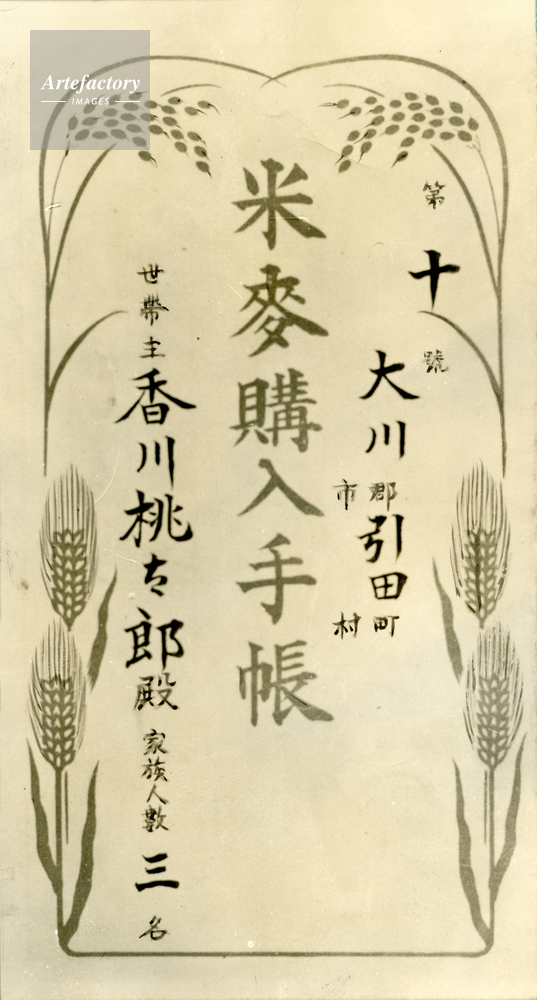 Artefactory
IMAGES
第十號
大川郡市引田町村
米麥購入手帳
世帶主香川桃太郎殿家族人數三名